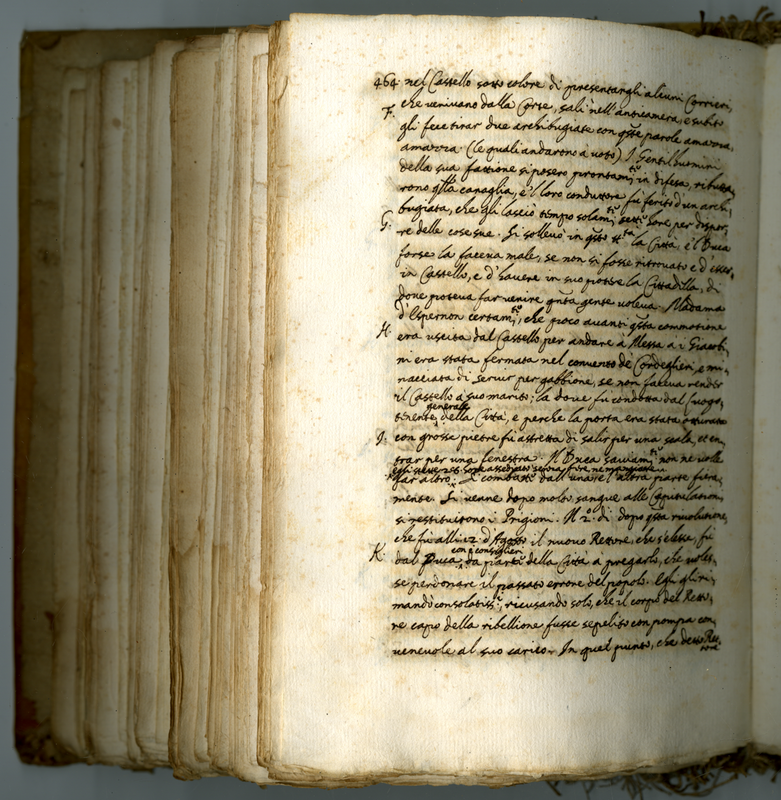 464. nel Castello sotto colore di presentargli alcuni Corrieri,
che venivano dalla Corte, salì nell'anticamera, e subito
F. gli fece tirar due archibugiate con qste parole amazza,
amazza (le quali andarono a voto) I Gentilhuomini
della sua fattione si posero prontamte in difesa, ributta,
rono qlla canaglia, e'l loro conduttore fù ferito d'un archi,
bugiata, che gli lasciò tempo solamte sette hore per dispor,
G. re delle cose sue. Si sollevò in qsto la Città, e'l Duca
forse la faceva male, se non si fosse ritrovato e d'esser
in Castello, e d'havere in suo potere la Cittadella, di
dove poteva far venire qnta gente voleva. Madama
d'Espernon che poco avanti qsta commotione
H. era uscita dal Castello per andare a Messa a i Giacobi,
ni era stata fermata nel convento de Cordeglieri, e mi,
nacciata di servir per gabbione, se non faceva render
il Castello a suo marito; la dove fù condotta dal luogo,
tenente generale della Città, e perche la porta era stata otturata
I. con grosse pietre fù astretta di salir per una scala, et en,
trar per una fenestra. Il Duca saviamte non ne volle
egli stette 28 hore assediato senza
far altro. Si combattè dall'una, e l'altra parte fiera,
mente. Si venne dopo molto sangue alle Capitulationi,
si restituirono i Prigioni. Il 2º dì dopo qsta rivolutione,
che fù alli 12 d'Agosto il nuovo Rettore, che s'elesse, fù
con i consiglieri
K. dal Duca da parte della Città a pregarlo, che voles,
se perdonare il passato errore del popolo. Egli gli ri,
mandò consolatissi, ricusando solo, che il corpo del Retto,
re capo della ribellione fusse sepelito con pompa con,
venevole al suo carico. In quel punto, che detto Ret,
tore